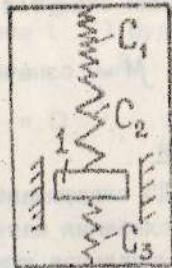 C₁
C₂
1
C₃